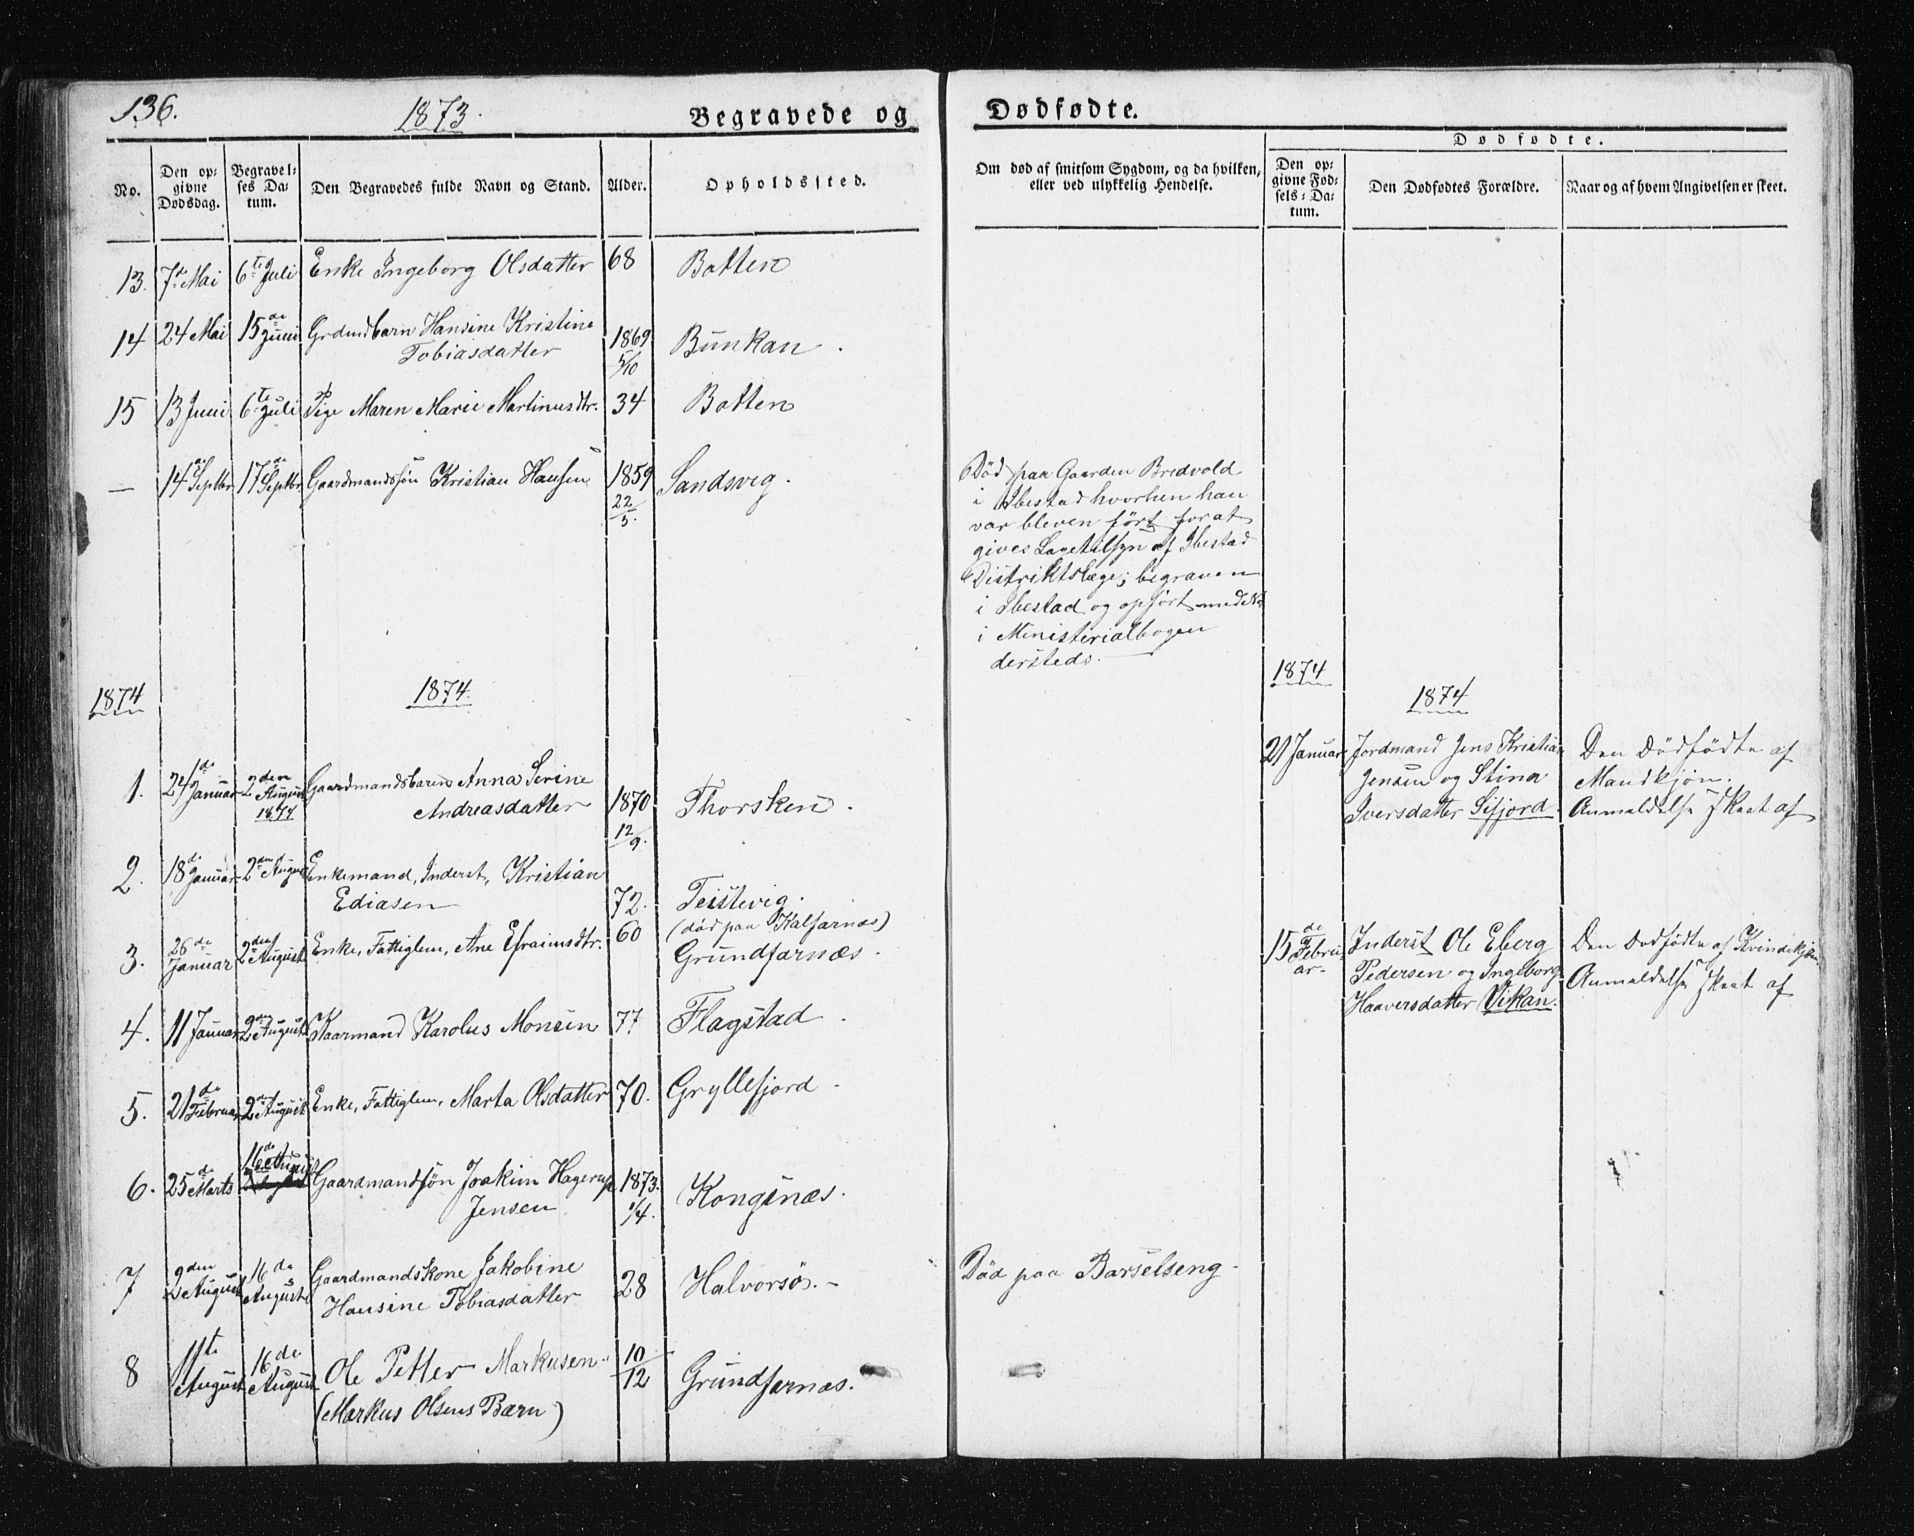 136.
1873.
Begravede og Dødfødte.
Dødfødte.
No.
Den opgivne Dødsdag.
Begravelses Datum.
Den Begravedes fulde Navn og Stand.
Alder.
Opholdssted.
Om død af smitsom Sygdom, og da hvilken, eller ved ulykkelig Hendelse.
Den opgivne Fødsels-Datum.
Den Dødfødtes Forældre.
Naar og af hvem Angivelsen er skeet.
13. 7de Mai 6te Juli Enke Ingeborg Olsdatter 68 Botten
14 24 Mai 15de Juni Grdmdsbarn Hansine Kristine
Tobiasdatter 1869 5/10 Bunkan.
15 13 Juni 6te Juli Pige Maren Marie Martinusdtr. 34 Botten
— 14de Septbr 17de Septbr Gaardmandssøn Kristian Hansen 1859 22/5. Sandsvig.
Død paa Gaarden Bredvold
i Ibestad hvorhen han
var bleven ført for at
gives Lægetilsyn af Ibestad
Distriktslæge; begraven
i Ibestad og opført
i Ministerialbogen
dersteds.
1874
1874.
1. 24de Januar 2den August 1874 Gaardmandsbarn Anna Serine
Andreasdatter 1870 12/9. Thorsken.
2. 18de Januar 2den August Enkemand, Inderst, Kristian
Ediasen 72. Teistevig.
(død paa Kalfarnæs)
3. 26de Januar 2den August Enke, Fattiglem, Ane Efraimsdtr. 60 Grundfarnæs.
4. 11 Januar 2den August Kaarmand Karolus Monsen 77 Flagstad.
5. 21de Februar 2den August Enke, Fattiglem, Marta Olsdatter 70. Gryllefjord.
6. 25de Marts 16de August Gaardmandssøn Joakim Hagerup
Jensen 1873. 1/4. Kongsnæs.
7 2den August 16de August Gaardmandskone Jakobine
Hansine Tobiasdatter 28 Halvorsø. Død paa Barselseng.
8 11te August 16de August Ole Petter Markusen 10/12 Grundfarnæs.
(Markus Olsens Barn)
1874
1874
21 Januar Jordmand Jens Kristian
Jensen og Stina
Iversdatter Sifjord.
Den Dødfødte af
Mandkjøn.
Anmeldelse skeet af
15de Februar Inderst Ole Eberg
Pedersen og Ingeborg
Haaversdatter Vikan.
Den Dødfødte af Kvindekjøn.
Anmeldelse skeet af